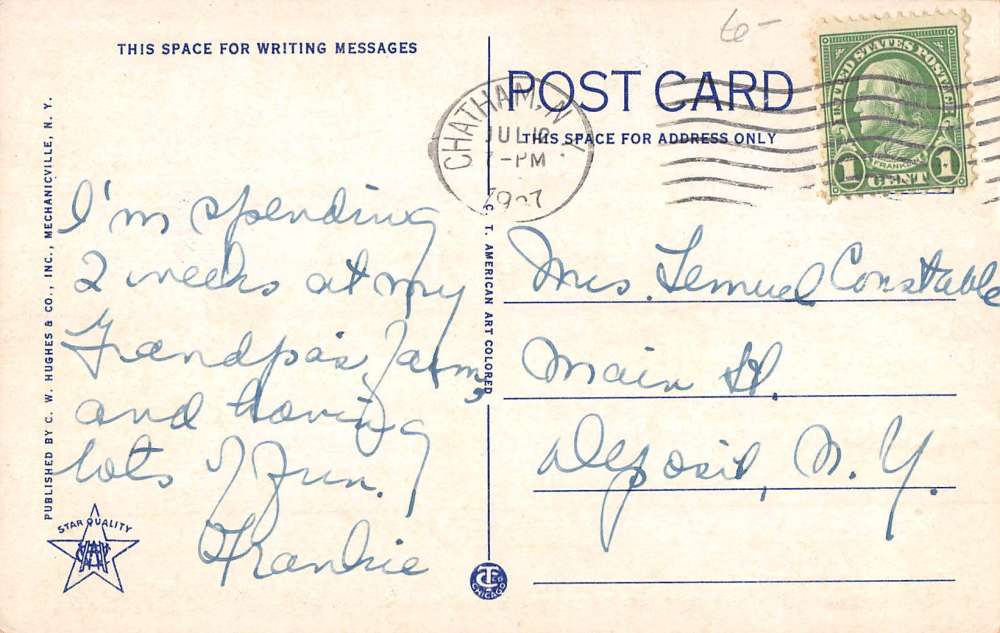 6-
THIS SPACE FOR WRITING MESSAGES
POST CARD
THIS SPACE FOR ADDRESS ONLY
CHATHAM, N.Y.
JUL 12
-PM
UNITED STATES POSTAGE
FRANKLIN
1 CENT 1
I'm spending
2 weeks at my
Grandpa's farm,
and having
lots of fun.
Frankie
Mrs. Lemuel Constable
Main St.
Deposit, N.Y.
PUBLISHED BY C. W. HUGHES & CO., INC., MECHANICVILLE, N. Y.
C. T. AMERICAN ART COLORED
STAR QUALITY
CHICAGO